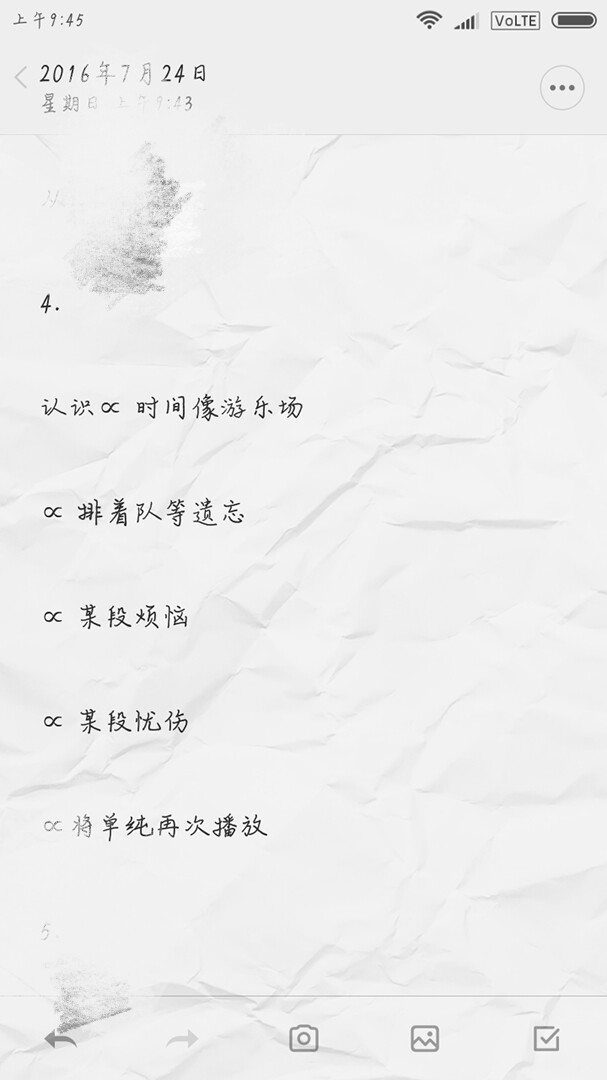 上午9:45
VoLTE
2016年7月24日
星期日 上午9:43
4.
认识∝ 时间像游乐场
∝ 排着队等遗忘
∝ 某段烦恼
∝ 某段忧伤
∝将单纯再次播放
5.